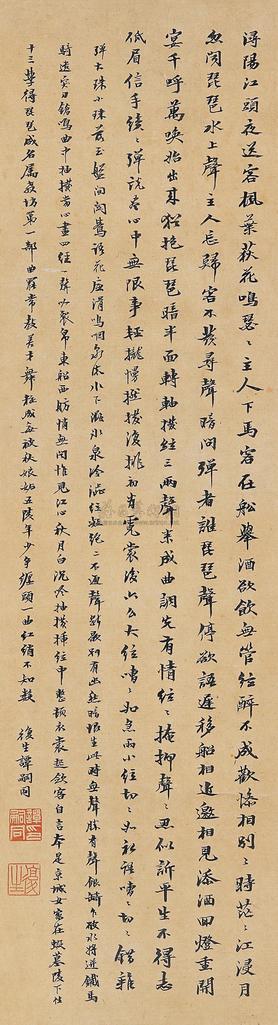 浔陽江頭夜送客楓葉荻花鳴瑟〻主人下馬客在船舉酒欲飲無管絃醉不成歡慘相別〻時茫〻江浸月
忽聞琵琶水上聲主人忘歸客不發尋聲暗問彈者誰琵琶聲停欲語遲移船相近邀相見添酒回燈重開
宴千呼萬喚始出來猶抱琵琶暗半面轉軸撥絃三兩聲未成曲調先有情絃〻掩抑聲〻思似訴平生不得志
低眉信手續〻彈說盡心中無限事輕攏慢撚撥復挑初為霓裳後六么大絃嘈〻如急雨小絃切〻如私語嘈〻切〻錯雜
彈大珠小珠落玉盤間關鶯語花底滑幽咽泉流水下灘水泉冷澀絃凝絕凝絕不通聲漸歇別有幽愁暗恨生此時無聲勝有聲銀瓶乍破水漿迸鐵馬
騎突出刀鎗鳴曲中抽撥當心畫四絃一聲如裂帛東船西舫悄無聞惟見江心秋月白沉吟抽撥插絃中整頓衣裳起歛容自言本是京城女家在蝦蟇陵下住
十三學得琵琶成名屬教坊第一部曲罷常教善才舞粧成每被秋娘妒五陵年少爭纏頭一曲紅綃不知數
復生譚嗣同